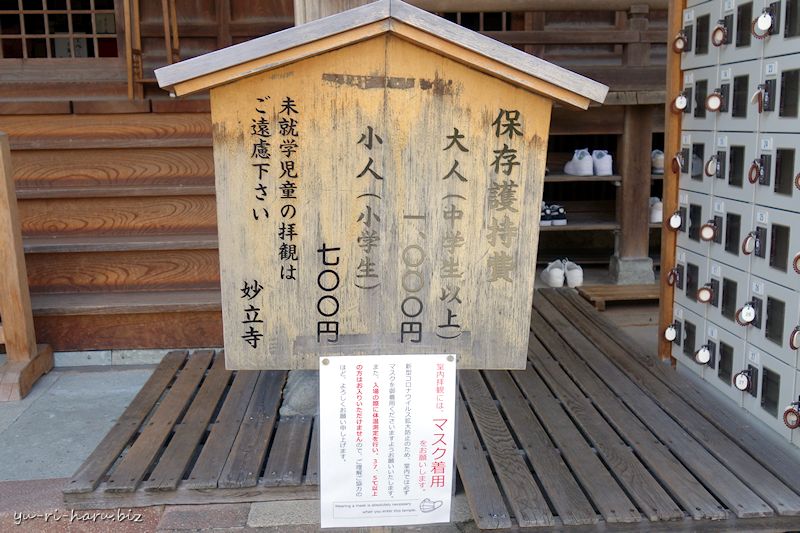 保存護持費
大人（中学生以上）
一、〇〇〇円
小人（小学生）
七〇〇円
未就学児童の拝観は
ご遠慮下さい
妙立寺
室内拝観には、マスク着用
をお願いします。
新型コロナウイルス拡大防止のため、室内では必ず
マスクを御着用くださいますようお願いします。
また、入場の際に体温測定を行い、３７．５℃以上
の方はお入りいただけませんので、ご理解ご協力の
ほど、よろしくお願い申し上げます。
Wearing a mask is absolutely necessary
when you enter this temple.
yu-ri-haru.biz